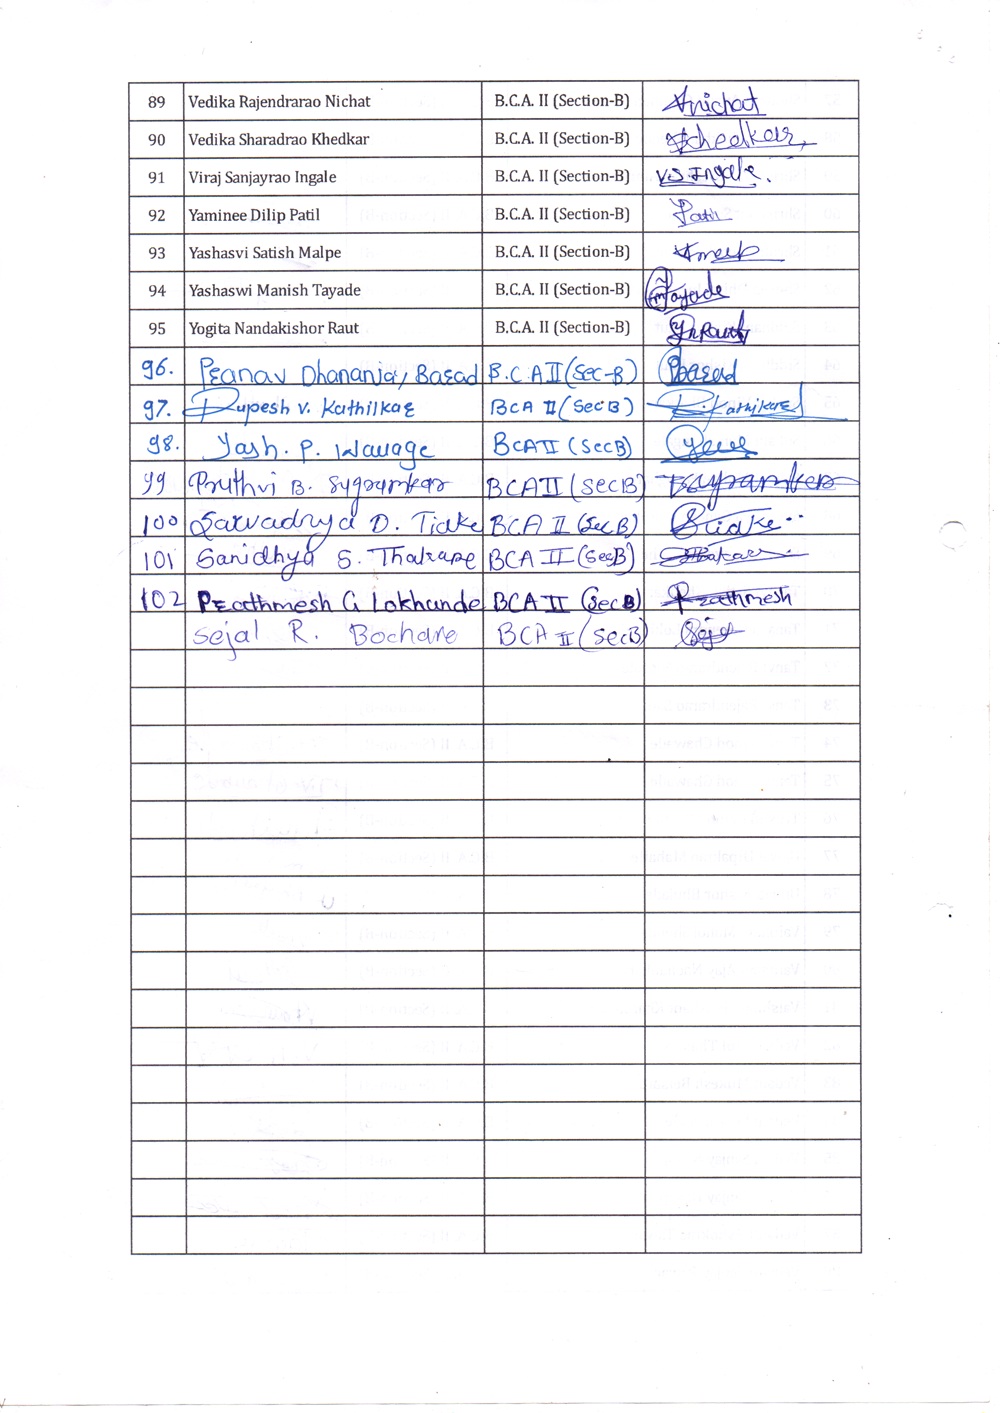 89 Vedika Rajendrarao Nichat B.C.A. II (Section-B) Vnichat
90 Vedika Sharadrao Khedkar B.C.A. II (Section-B) Khedkar
91 Viraj Sanjayrao Ingale B.C.A. II (Section-B) V.S.Ingale.
92 Yaminee Dilip Patil B.C.A. II (Section-B) Patil
93 Yashasvi Satish Malpe B.C.A. II (Section-B)
94 Yashaswi Manish Tayade B.C.A. II (Section-B) Tayade
95 Yogita Nandakishor Raut B.C.A. II (Section-B) YNRaut
96. Pranav Dhananjay Basad B.C A II (Sec-B) PBasad
97. Rupesh V. Kathilkar BCA II (Sec B) R.Kathilkar
98. Yash. P. Wawage BCA II (SecB)
99 Pruthvi B. BCA II (SecB)
100 Sarvadnya D. Tidke BCA II (Sec B) STidke..
101 Sanidhya S. Thakare BCA II (SecB) SThakare
102 Prathmesh G Lokhande BCA II (Sec B) Prathmesh
Sejal R. Bochare BCA II (SecB) Sejal